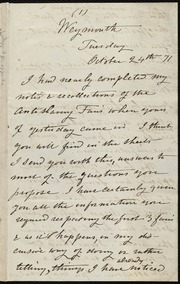 (1)
Weymouth
Tuesday
October 24th 71
I had nearly completed my
notes & recollections of the
Anti Slavery Fair when yours
of yesterday came in. I think
you will find in the sheets
I send you with this, answers to
most of the questions you
propose. I have certainly given
you all the information you
required respecting the first Fair
& as it happens, in my
way of doing or rather
telling things I have already noticed